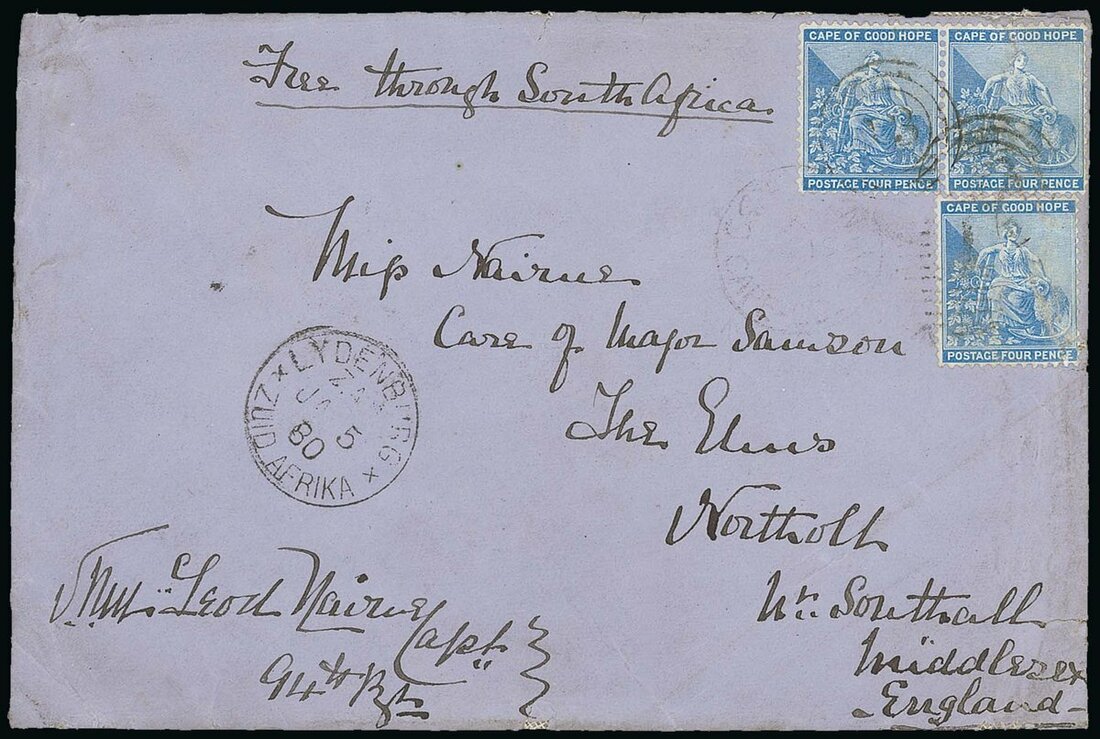 Free through South Africa
CAPE OF GOOD HOPE
POSTAGE FOUR PENCE
CAPE OF GOOD HOPE
POSTAGE FOUR PENCE
CAPE OF GOOD HOPE
POSTAGE FOUR PENCE
Miss Nairne
Care of Major Samson
The Elms
Northolt
Nr. Southall
Middlesex
England
LYDENBURG
JA 5
80
ZUID AFRIKA
Leod Nairne Capt
94th Rgt